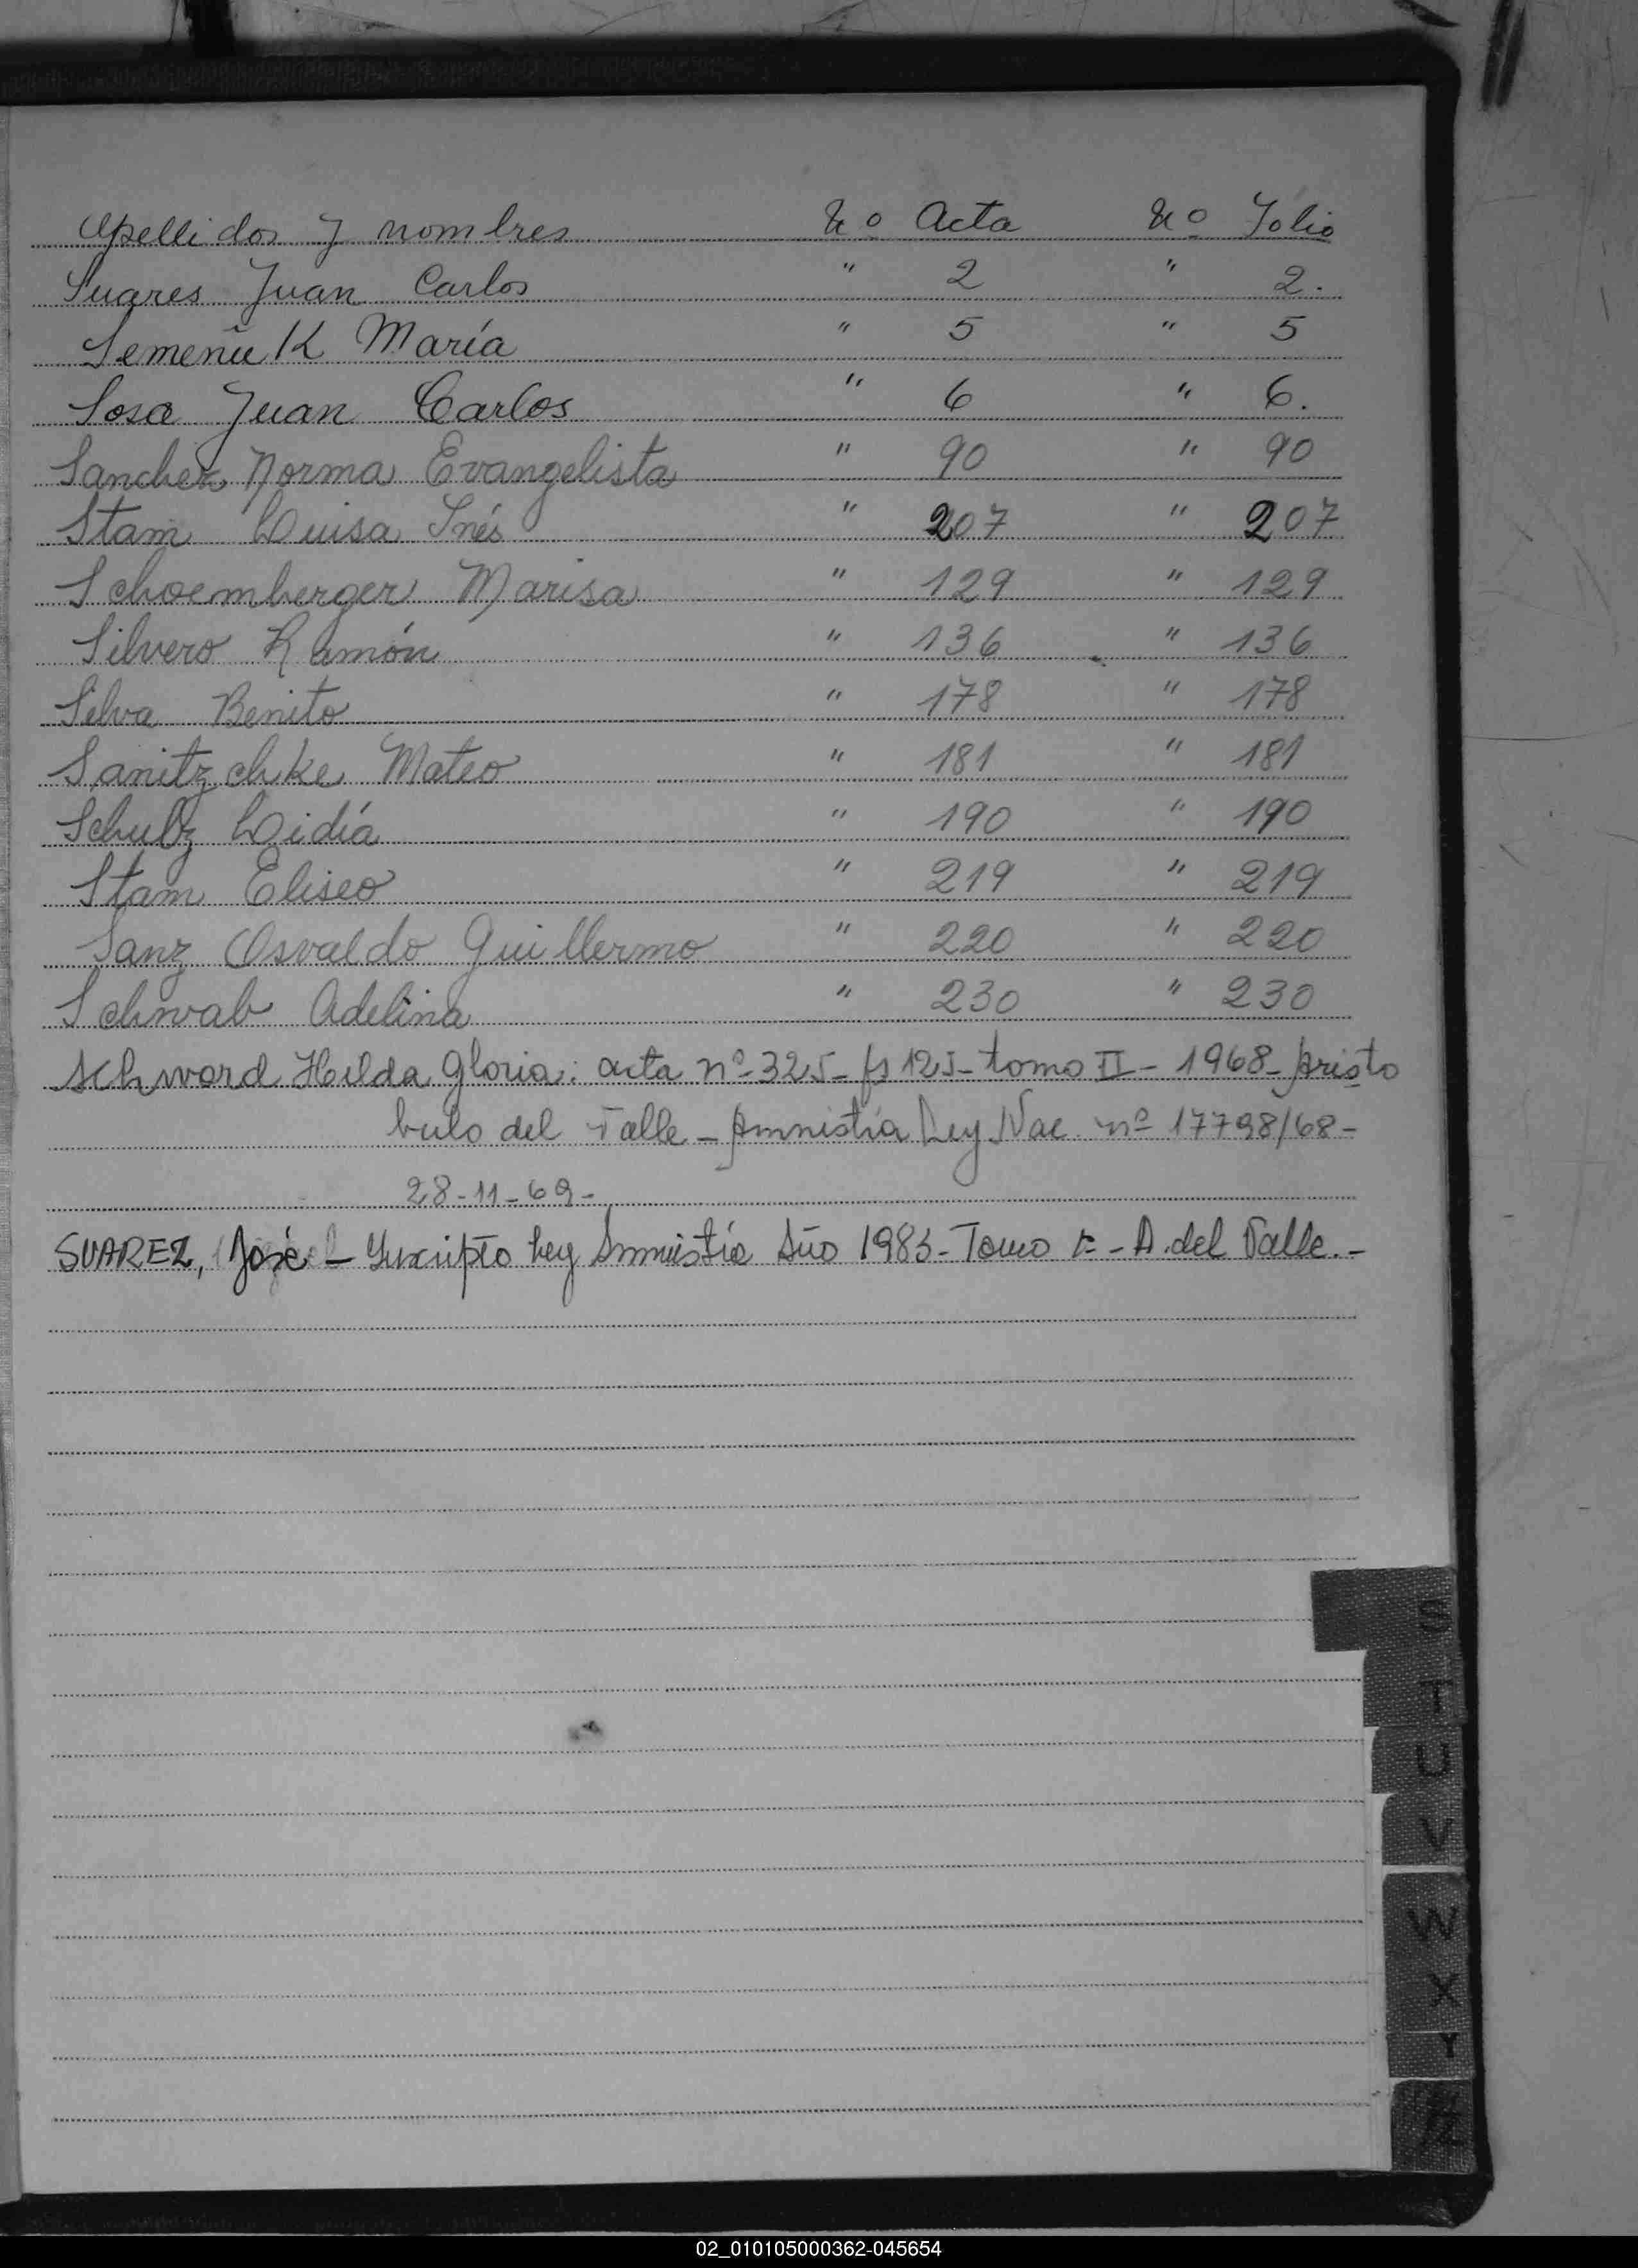 Apellidos y nombres Nº Acta Nº Folio
Suares Juan Carlos " 2 " 2.
Semeñuk María " 5 " 5
Sosa Juan Carlos " 6 " 6.
Sanchez Norma Evangelista " 90 " 90
Stam Luisa Inés " 207 " 207
Schoemberger Marisa " 129 " 129
Silvero Ramón " 136 " 136
Silva Benito " 178 " 178
Sanitzchke Mateo " 181 " 181
Schulz Lidía " 190 " 190
Stam Eliseo " 219 " 219
Sanz Osvaldo Guillermo " 220 " 220
Schwab Adelina " 230 " 230
Schword Hilda Gloria: acta nº 325 - fs 125 - tomo II - 1968 - Aristo
bulo del Valle - Amnistía Ley Nac. nº 17798/68 -
28-11-69-
SUAREZ, José - Inscripto Ley Amnistía Año 1983 - Tomo - A. del Valle. -
S
T
U
V
W
X
Y
Z
02_010105000362-045654